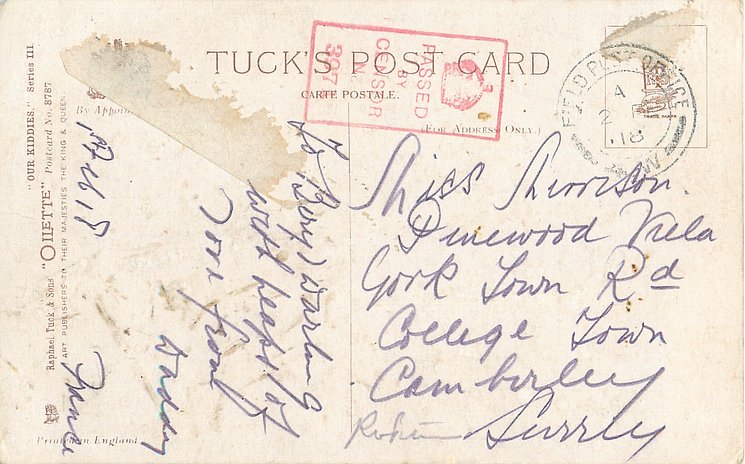 TUCK'S POST CARD
CARTE POSTALE.
(FOR ADDRESS ONLY.)
PASSED
BY
CENSOR
No.
397
FIELD POST OFFICE
A
2
.18
TRADE MARK
"OUR KIDDIES." Series III
Raphael Tuck & Sons "OILETTE" Postcard No. 8787
By Appoin
ART PUBLISHERS TO THEIR MAJESTIES THE KING & QUEEN.
Printed in England
France
To Beryl Darling
with heaps of
love from
Daddy
Miss
Pinewood Villa
York Town Rd
College Town
Camberley
Surrey